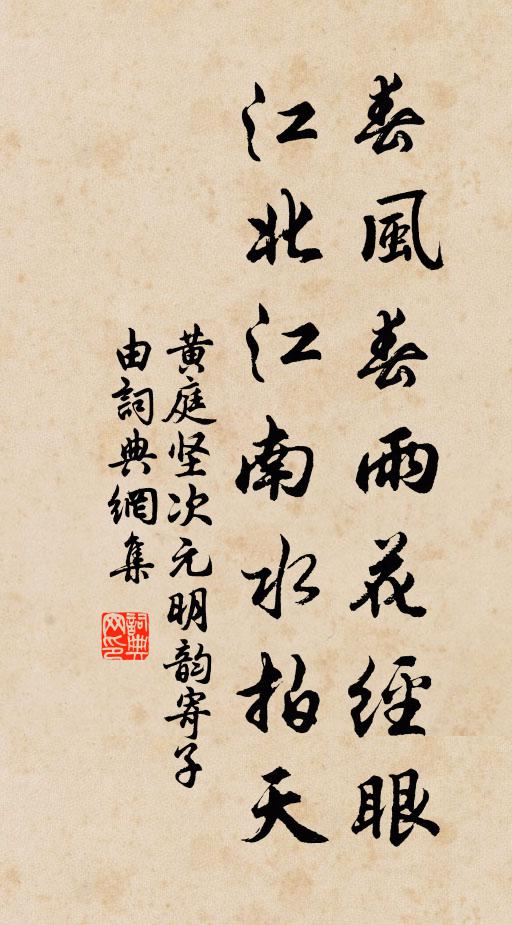 春風春雨花經眼
江北江南水拍天
黄庭坚次元明韵寄子
由詞典網集
詞典网印